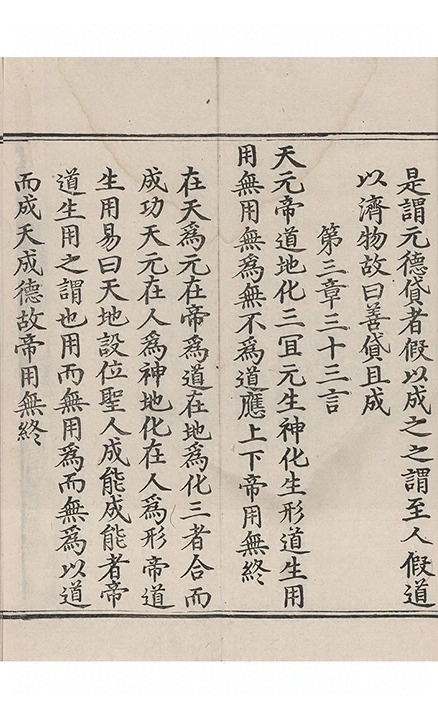 是謂元德貸者假以成之之謂至人假道
以濟物故曰善貸且成
第三章三十三言
天元帝道地化三冝元生神化生形道生用
用無用無爲無不爲道應上下帝用無終
在天爲元在帝爲道在地爲化三者合而
成功天元在人爲神地化在人爲形帝道
生用易曰天地設位聖人成能成能者帝
道生用之謂也用而無用爲而無爲以道
而成天成德故帝用無終